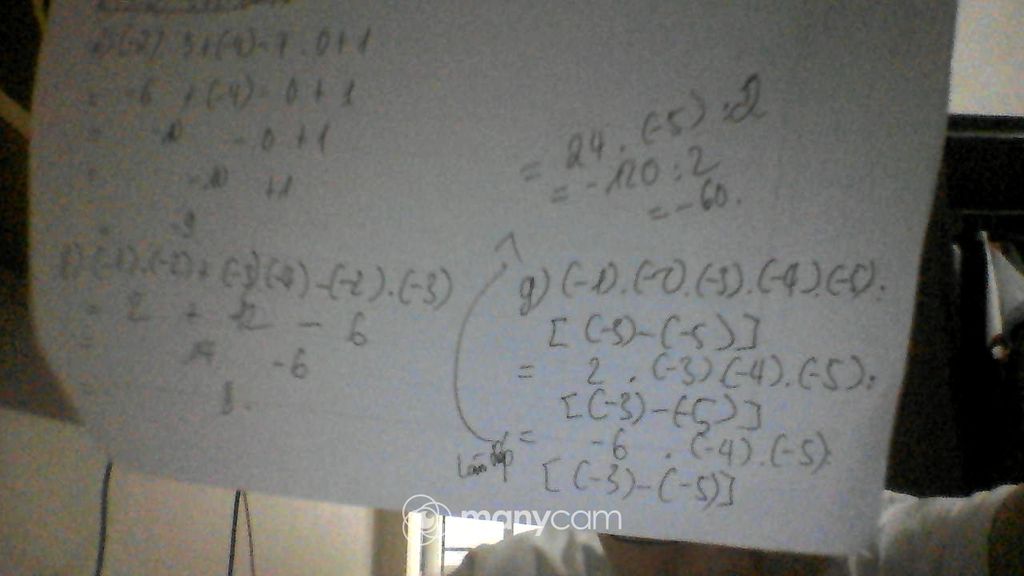 e) (-2) 3 + (-4) - 7 . 0 + 1
= -6 + (-4) - 0 + 1
= -10 - 0 + 1
= -10 + 1
= -9
f) (-1).(-2) + (-3)(-4) - (-2).(-3)
= 2 + 12 - 6
= 14 - 6
8.
= 24 . (-5) : 2
= -120 : 2
= -60.
g) (-1).(-2).(-3).(-4)(-5):
[(-3)-(-5)]
= 2 . (-3)(-4).(-5):
[(-3)-(-5)]
= -6 . (-4).(-5):
[(-3)-(-5)]
Làm tiếp
manycam